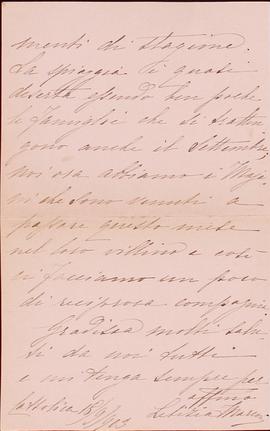 menti di stagione.
La spiaggia è quasi
deserta essendo ben poche
le famiglie che si trattengono
gono anche il Settembre,
noi ora abbiamo i
ni che sono venuti a
passare questo mese
nel loro villino e così
ci facciamo un poco
di reciproca compagnia
Gradisca molti saluti
ti da noi tutti
e mi tenga sempre per
affma
Cattolica Letizia